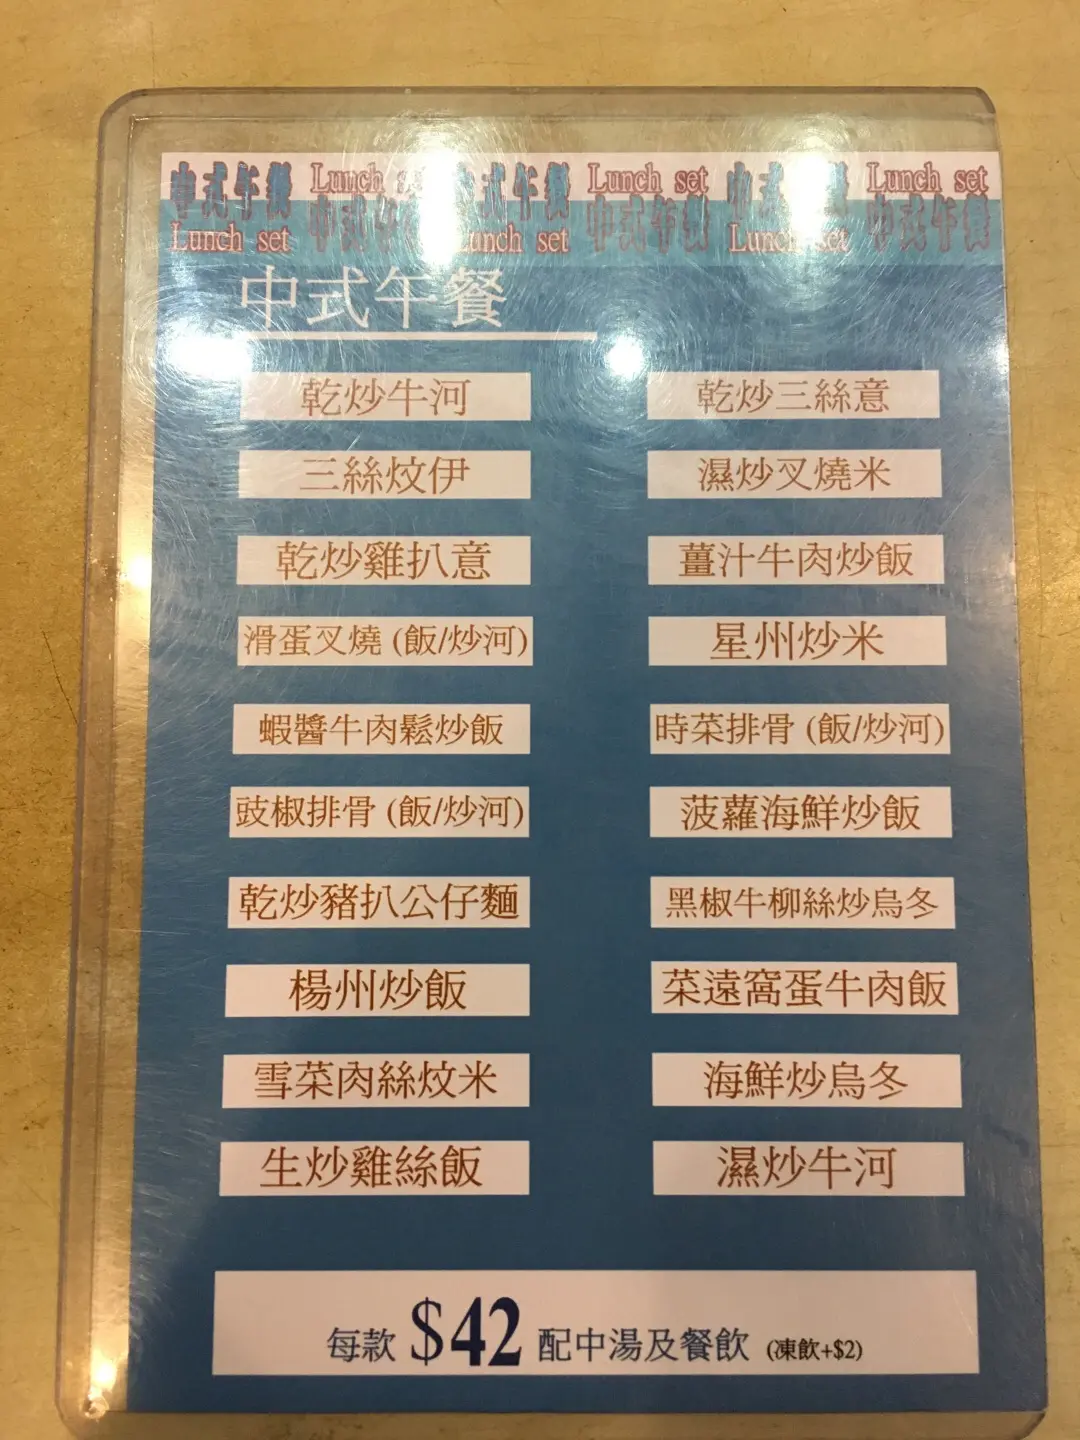 中式午餐 Lunch set 中式午餐 Lunch set 中式午餐 Lunch set
Lunch set 中式午餐 Lunch set 中式午餐 Lunch set 中式午餐
中式午餐
乾炒牛河
乾炒三絲意
三絲炆伊
濕炒叉燒米
乾炒雞扒意
薑汁牛肉炒飯
滑蛋叉燒 (飯/炒河)
星州炒米
蝦醬牛肉鬆炒飯
時菜排骨 (飯/炒河)
豉椒排骨 (飯/炒河)
菠蘿海鮮炒飯
乾炒豬扒公仔麵
黑椒牛柳絲炒烏冬
楊州炒飯
菜遠窩蛋牛肉飯
雪菜肉絲炆米
海鮮炒烏冬
生炒雞絲飯
濕炒牛河
每款 $42 配中湯及餐飲 (凍飲+$2)